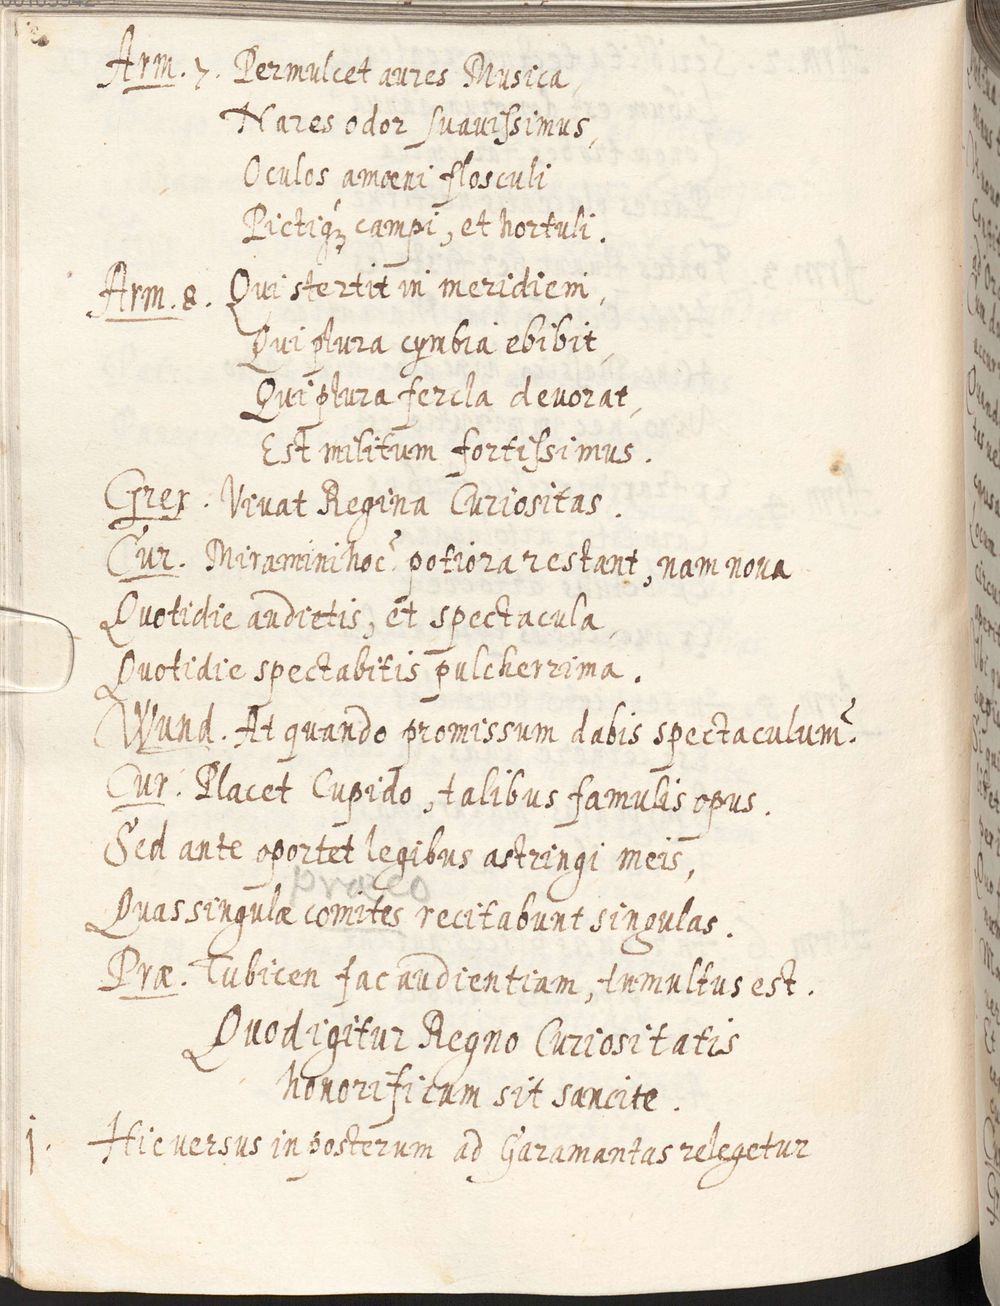 Arm. 7. Permulcet aures Musica,
Nares odor suauissimus,
Oculos amœni flosculi
Pictiq́ꝫ campi, et hortuli.
Arm. 8. Qui stertit in meridiem,
Qui plura cymbia ebibit,
Qui plura fercla deuorat,
Est militum fortissimus.
Grex. Viuat Regina Curiositas.
Cur. Miramini hoc? potiora restant, nam noua
Quotidie audietis, et spectacula,
Quotidie spectabitis pulcherrima.
Wund. At quando promissum dabis spectaculum?
Cur. Placet Cupido, talibus famulis opus.
Sed ante oportet legibus astringi meis,
Quas singulæ comites recitabunt singulas.
Præ. Tubicen fac audientiam, tumultus est.
Quod igitur Regno Curiositatis
honorificum sit sancite.
j. Hic versus in posterum ad Garamantas relegetur